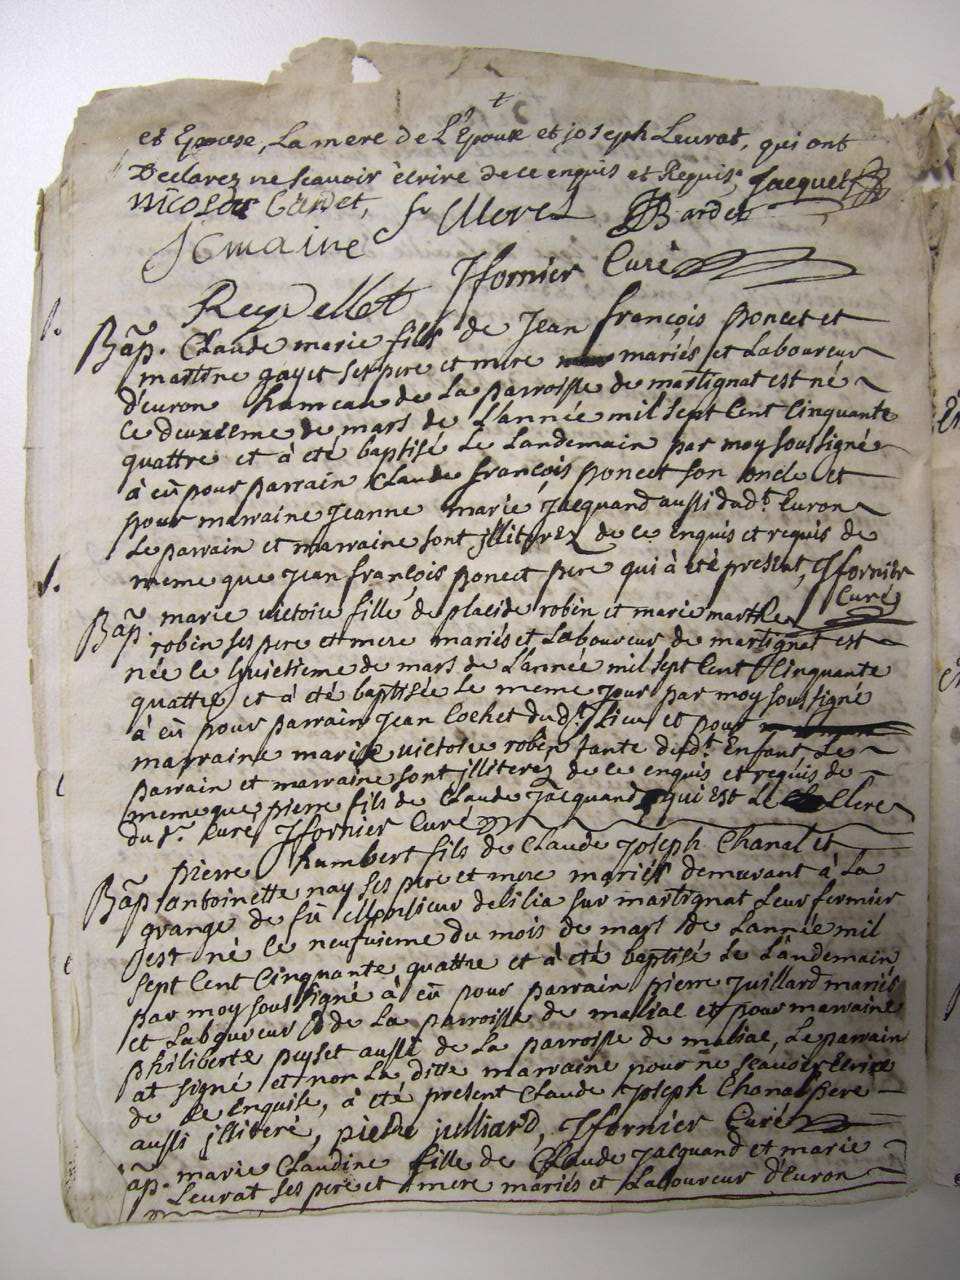 et Epouse, La mere de L'Epoux et joseph Leurat, qui ont
Declarez ne scavoir ècrire de ce enquis et Requis, Jacquet
NICOLAS Gardet, f. Morel JBardet
Jemaine
Reydellet Jfornier Curé
Bap. Claude marie fils de Jean françois poncet et
martine gayet ses pere et mere mariés et Laboureur
d'euron hameau de La parroisse de martignat est né
Ce deuxieme de mars de L'année mil sept Cent Cinquante
quattre et à été baptisé Le Landemain par moy soussigné
à eü pour parrain Claude françois poncet son oncle et
pour marraine Jeanne marie Jacquand aussi dud.t Euron
Le parrain et marraine sont jlliterez de ce enquis et requis de
meme que jean françois poncet pere qui à été present, Jfornier
Curé
Bap. marie victoire fille de placide robin et marie marthe
robin ses pere et mere mariés et Laboureur de martignat est
née le huictieme de mars de L'année mil sept Cent Cinquante
quattre et à été baptisée Le meme jour par moy soussigné
à eü pour parrain Jean Cochet dud.t Lieu et pour
marraine marie victoire robin tante dud.t Enfant Le
parrain et marraine sont jlliterez de ce enquis et requis de
meme que pierre fils de Claude Jacquand qui Est Le Clerc
dud.t Curé Jfornier Curé
pierre humbert fils de Claude Joseph Chanal et
Bap. antoinette nay ses pere et mere mariés demurant à La
grange de fü Monsieur delilia sur martignat Leur fermier
est né le neufuieme du mois de mars de Lannée mil
sept Cent Cinquante quattre et à été baptisé Le Landemain
par moy soussigné à eü pour parrain pierre Juillard mariés
et Laboureur de La parroisse de maliat et pour marraine
philiberte peyset aussi de La parroisse de maliae, Le parrain
at signé et non La ditte marraine pour ne scavoir Ecrire
de ce Enquise, à été present Claude Joseph Chanal pere
aussi jlliteré, pierre julliard, Jfornier Curé
Bap. marie Claudine fille de Claude Jacquand et marie
Leurat ses pere et mere mariés et Laboureur d'Euron